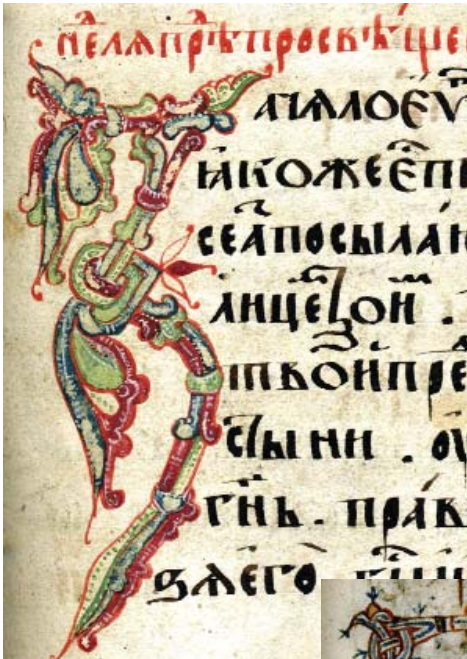 неⷧ҇ѧ прѣ просвѣще
Зачѧло еѵ
ꙗкоже е пи
се а посылаю
лице твои .
твой пре
стыни . оу
гнь . прав
зѧ его .